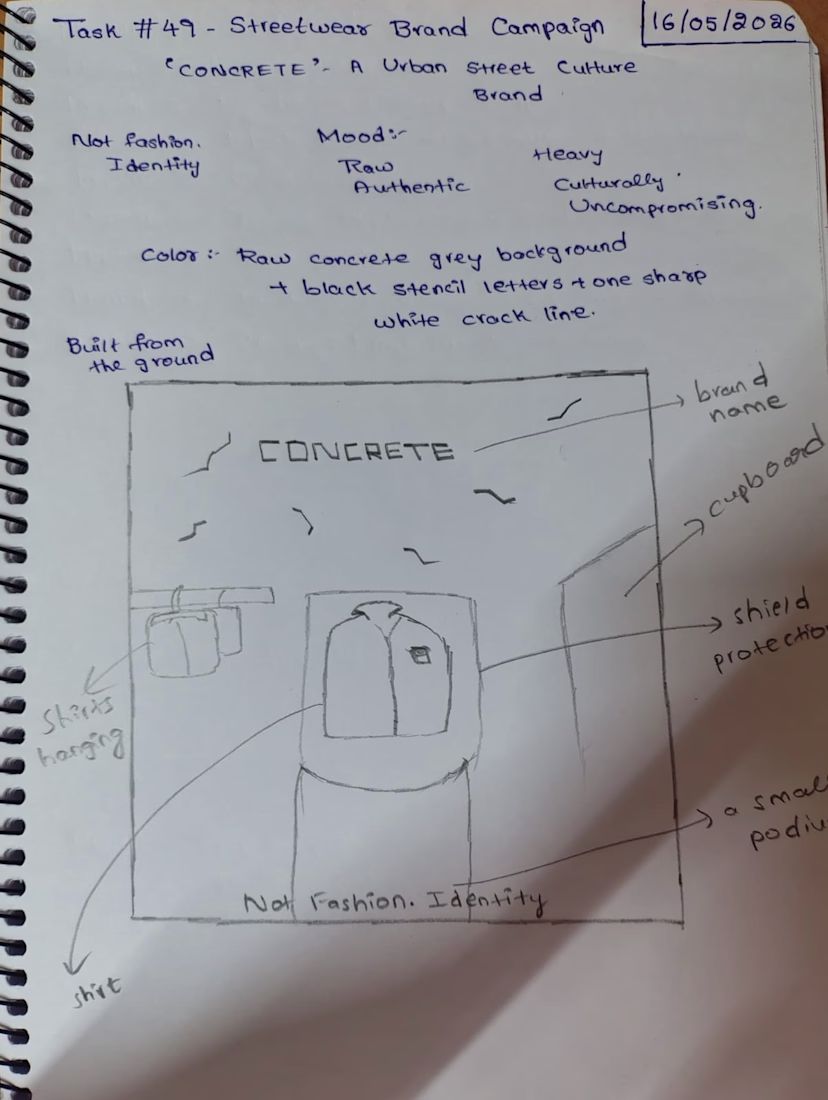 Task #49 - Streetwear Brand Campaign
16/05/2026
"CONCRETE" - A Urban Street Culture
Brand
Not fashion.
Identity
Mood:-
Raw
Authentic
Heavy
Culturally
Uncompromising.
Color:- Raw concrete grey background
+ black stencil letters + one sharp
white crack line.
Built from
the ground
CONCRETE
brand
name
cupboard
shield
protection
Shirts
hanging
a small
podiu
Not Fashion. Identity
shirt